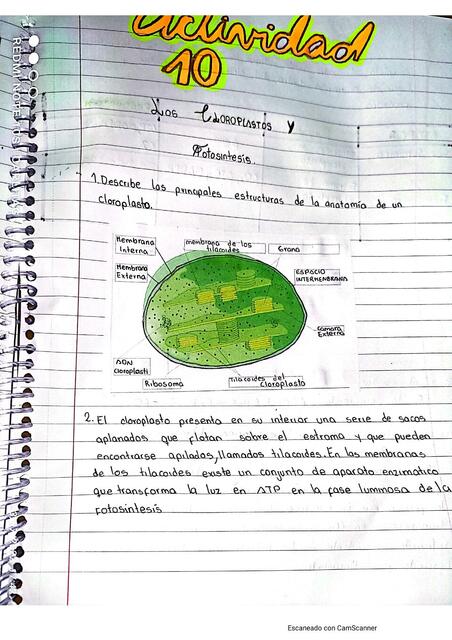 Actividad
10
Los Cloroplastos y
Fotosintesis.
1. Describe las principales estructuras de la anatomía de un
cloroplasto.
Membrana
Interna
membrana de los
tilacoides
Grana
Membrana
Externa
ESPACIO
INTERMEMBRANA
Camara
Externa
ADN
cloroplasti
Ribosoma
Tilacoides del
cloroplasto
2. El cloroplasto presenta en su interior una serie de sacos
aplanados que flotan sobre el estroma y que pueden
encontrarse apilados, llamados tilacoides. En las membranas
de los tilacoides existe un conjunto de aparato enzimatico
que transforma la luz en ATP en la fase luminosa de la
fotosintesis
Escaneado con CamScanner